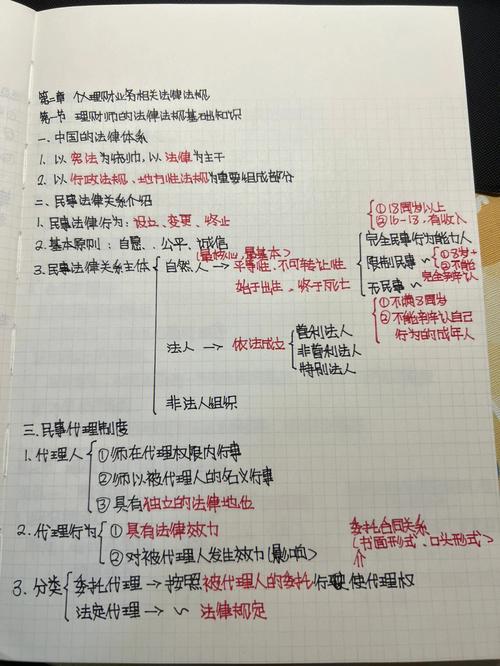 第二章 个人理财业务相关法律法规
第一节 理财师的法律法规基础知识
一、中国的法律体系
1. 以宪法为统帅,以法律为主干
2. 以行政法规、地方性法规为重要组成部分
二、民事法律关系介绍
1. 民事法律行为:设立、变更、终止
2. 基本原则:自愿、公平、诚信(最核心,最基本)
3. 民事法律关系主体
自然人 → 平等性、不可转让性
始于出生、终于死亡
①18周岁以上
②16-18,有收入
完全民事行为能力人
限制民事 ~ ①8岁+
②不能完全辨认
无民事 ~
①不满8周岁
②不能辨认自己行为的成年人
法人 → 依法成立
营利法人
非营利法人
特别法人
非法人组织
三、民事代理制度
1. 代理人
①师在代理权限内行事
②师以被代理人的名义行事
③具有独立的法律地位
2. 代理行为
①具有法律效力
②对被代理人发生效力(影响)
委托合同关系
(书面形式、口头形式)
↑
3. 分类
委托代理 → 按照被代理人的委托行使代理权
法定代理 → ~ 法律规定